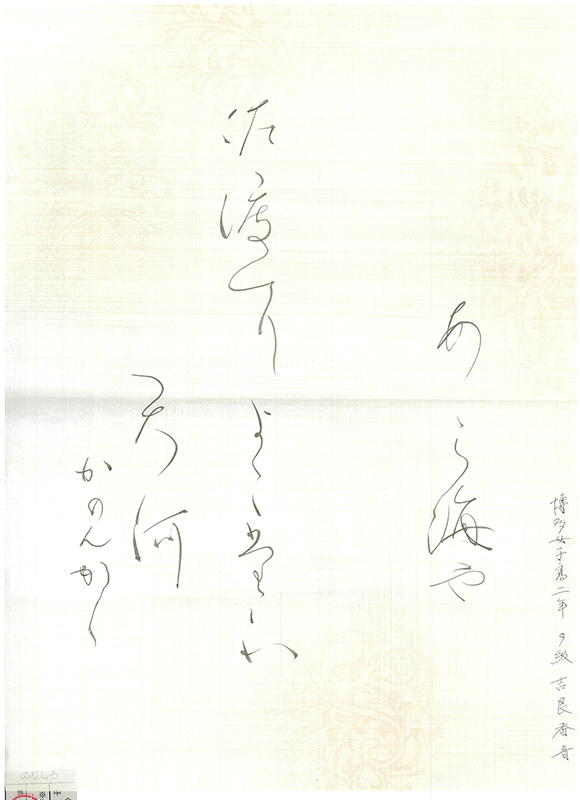 博多女子高二年 9級 吉良香音
あら海や
佐渡によこ堂ふ
天河
かのんかく
のりしろ